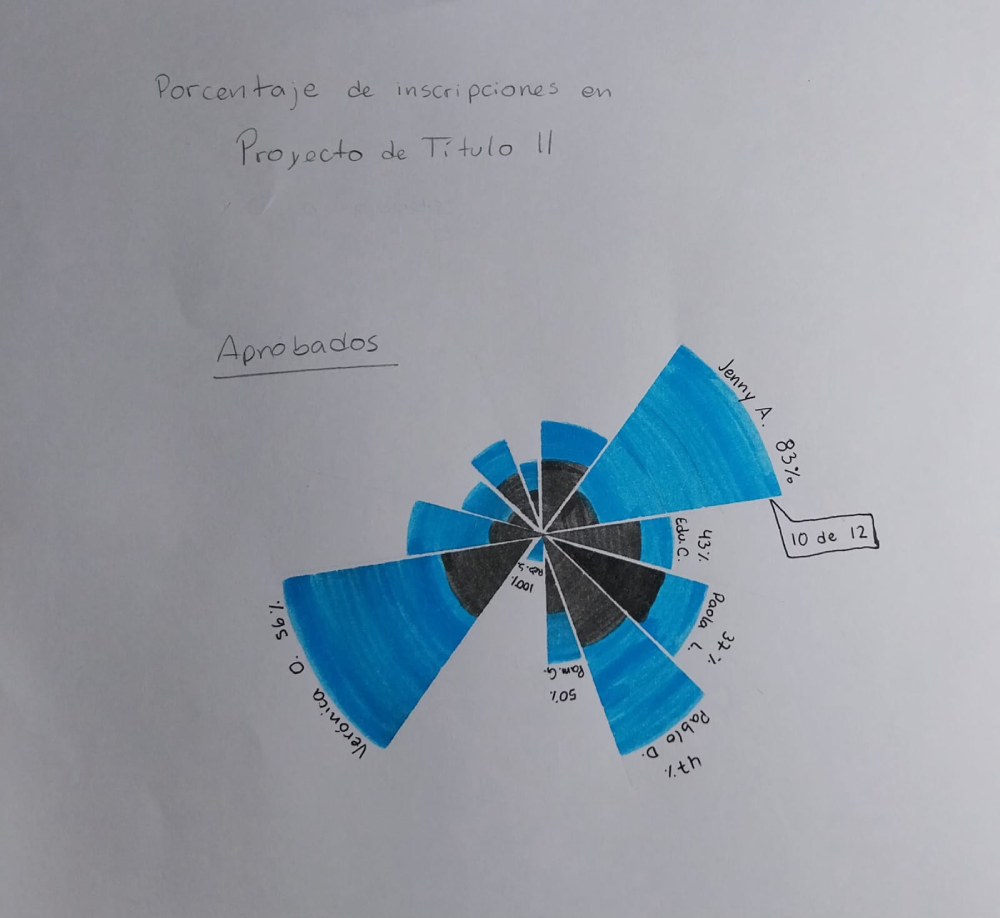 Porcentaje de inscripciones en
Proyecto de Título II
Aprobados
Jenny A. 83%
10 de 12
Edu. C. 43%
Paola L. 37%
Pablo D. 47%
Pam. G. 50%
100%
Verónica O. 56%